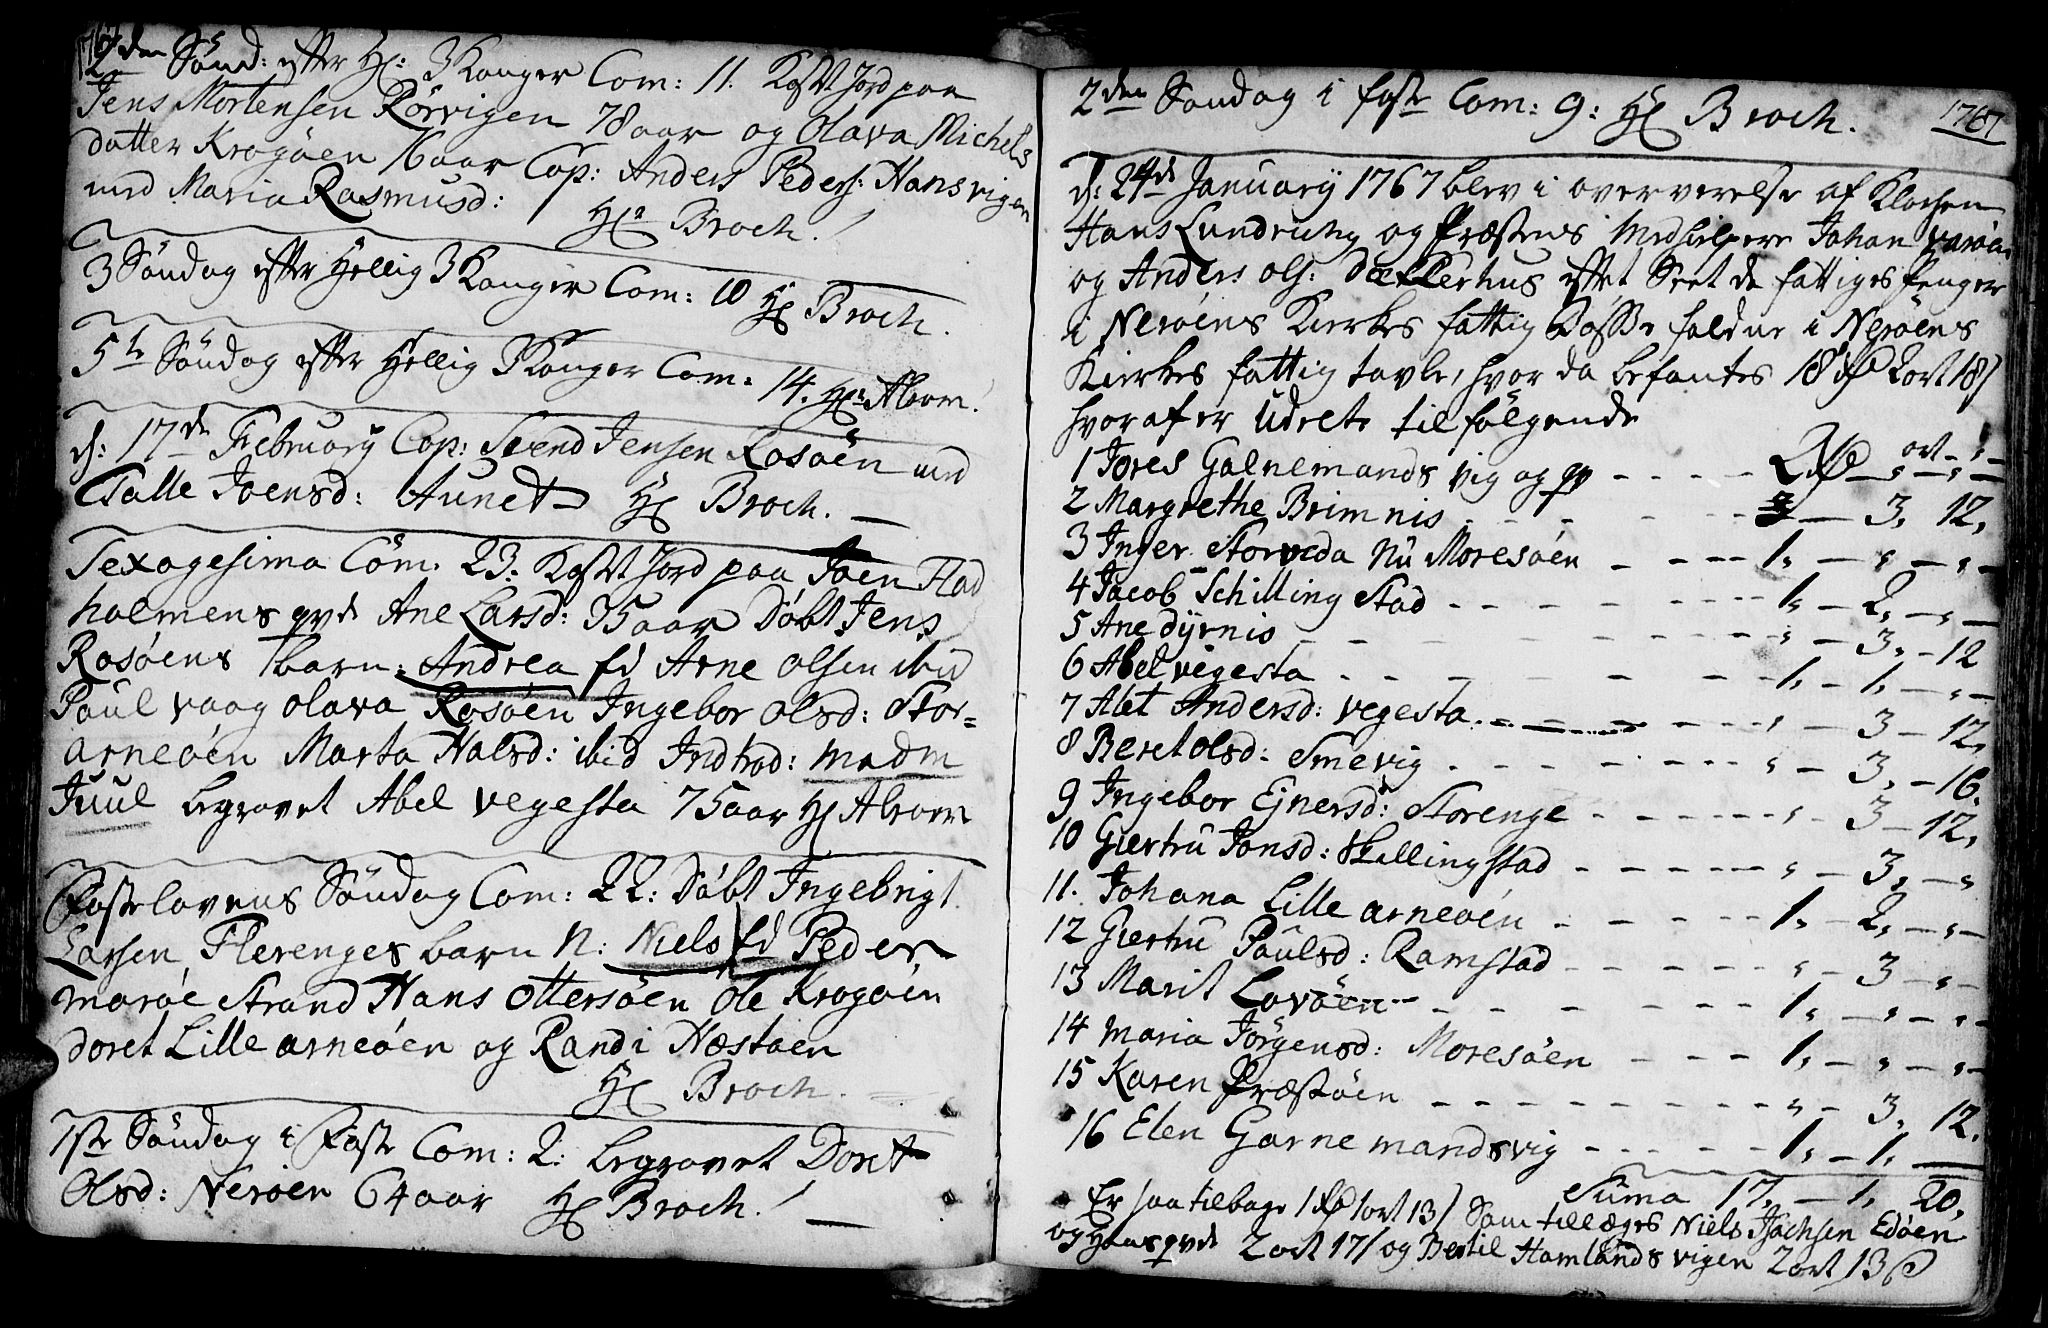 1767
2den Sönd: efter Hel: 3 Konger Com: 11. Kast Jord paa
Jens Mortensen Rörvigen 78 aar og Olava Michels
datter Krogöen 16 aar Cop: Anders Peders: Hansvigen
med Maria Rasmusd: Hr Broch.
3 Söndag efter Hellig 3 Konger Com: 10 Hr Broch.
5te Söndag efter Hellig 3 Konger Com: 14. Hr
d: 17de February Cop: Svend Jensen Rosöen med
Joensd: Aunet Hr Broch.
Sexagesima Com. 23: Kast Jord paa Joen Flad
holmens qvde Ane Larsd: 35 aar Döbt Jens
Rosöens barn: Andrea fd Arne Olsen ibid
Paul vaag Olava Rosöen Ingebor Olsd: Stor=
arneöen Marta Halsd: ibid Introd: Madm
Juul begravet Abel Vegesta 75 aar Hr
Fastelavens Söndag Com: 22: Döbt Ingebrigt
Larsen Flerenges barn N: Niels fd Peder
Maröe Strand Hans Ottersöen Ole Krogöen
Doret Lille arneöen og Randi Næstöen
Hr Broch.
1ste Söndag i Faste Com: 2: begravet Doret
Olsd: Neröen 64 aar Hr Broch.
2den Söndag i faste Com: 9: Hr Broch. 1767
d: 24de January 1767 blev i oververelse af Klochen
Hans Lundring og Præstens Medhielpere Johan
og Anders Ols: Dæklerhus efter Seet de fattiges Penger
i Neröens Kierkes fattig Bösse faldne i Neröens
Kierkes fattig tavle, hvor da befantes 18 rd 2 ort 18 s
hvoraf er Udelte til fölgende
rd ort s
1 Jores Galnemandsvig og qv - - - - 2 - " - " -
2 Margrethe Brimnis - - - - 3, 12,
3 Inger Storveda Nu Moresöen - - - 1, - " - " -
4 Jacob Schilling Stad - - - - 1, - 2, - " -
5 Ane dyrnis - - - - " - 3, - 12
6 Abel vegesta - - - - 1, - 1, - " -
7 Alet Andersd: vegesta - - - - " - 3 - 12,
8 Beret Olsd: Smevig - - - - " - 3, - 16.
9 Ingebor Ejnersd: Storenge - - - - " - 3 - 12,
10 Giertru Jonsd: Skillingstad - - - - " - 3, - "
11. Johana Lille arneöen - - - - 1, - 2, - " -
12 Giertru Paulsd: Ramstad - - - - " - 3 - " -
13 Marit Lovöen - - - - 1, - " - " -
14 Maria Jörgensd: Moresöen - - - 1, - " - " -
15 Karen Præstöen - - - - " - 3, 12.
16 Elen Garnemandsvig - - - - 1, - 1, -
Suma 17, - 1, 20,
Er saa tilbage 1 rd 1 ort 13 s Som tillæges Niels Isachsen Edöen
og Hans qvde 2 ort 17 s og Bertil Hamlandsvigen 2 ort 13 s